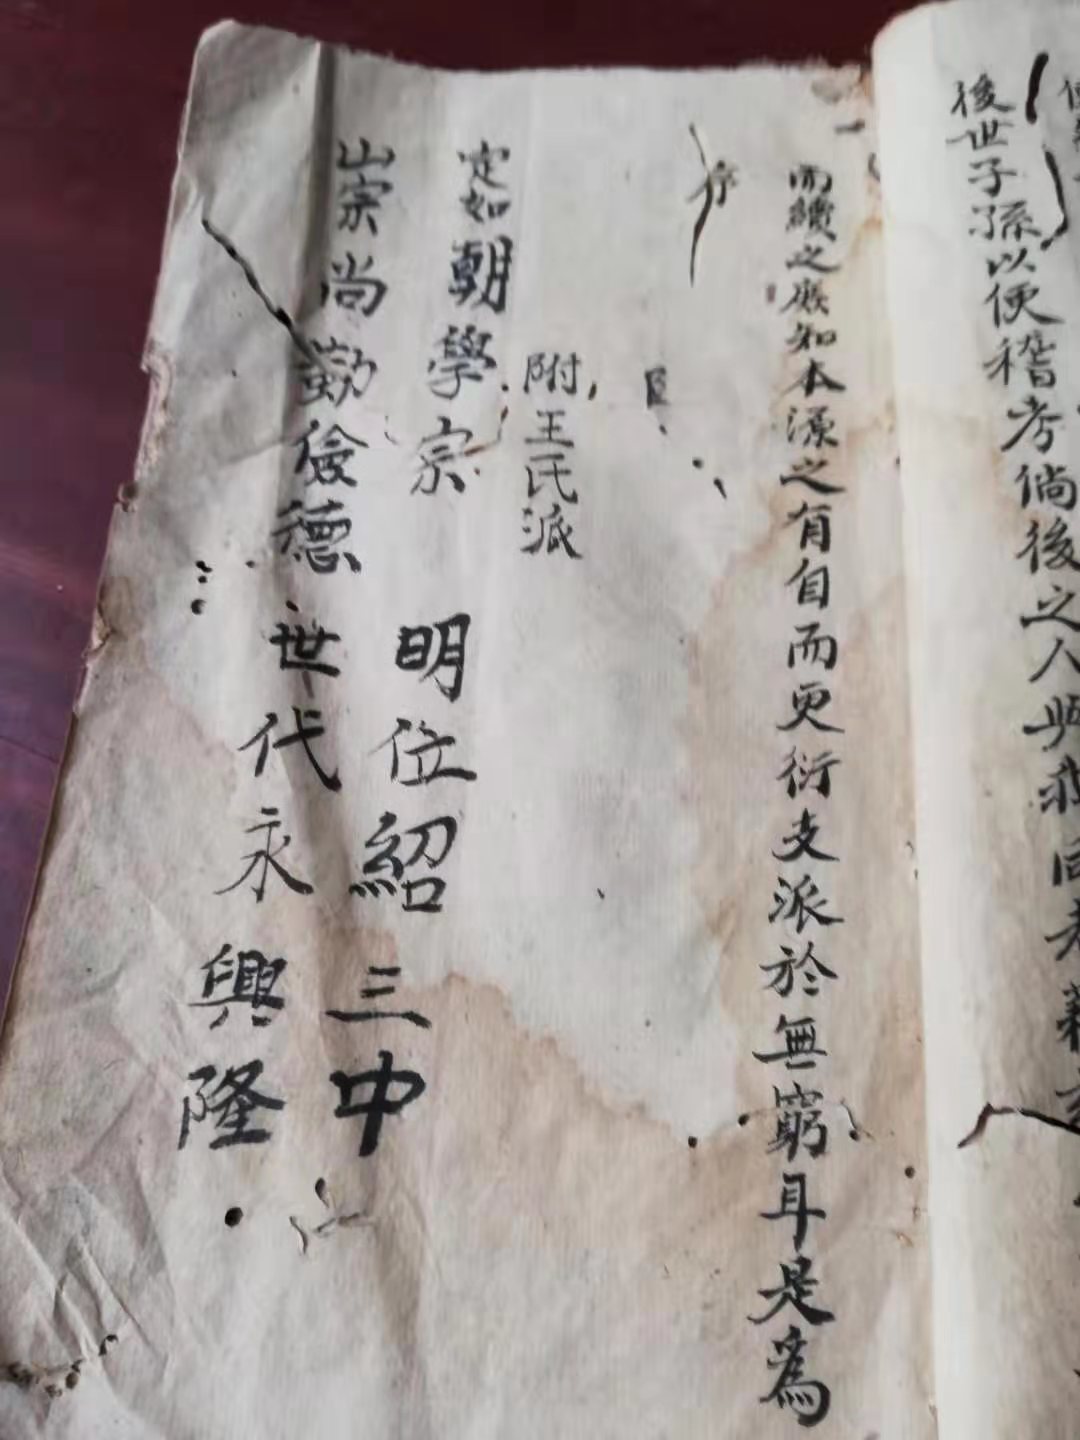 後世子孫以便稽考倘後之人與我同
而續之庶知本源之有自而更衍支派於無窮耳是為
序
附王氏派
定如朝學宗 明位紹三中
山宗尚勤儉德世代永興隆